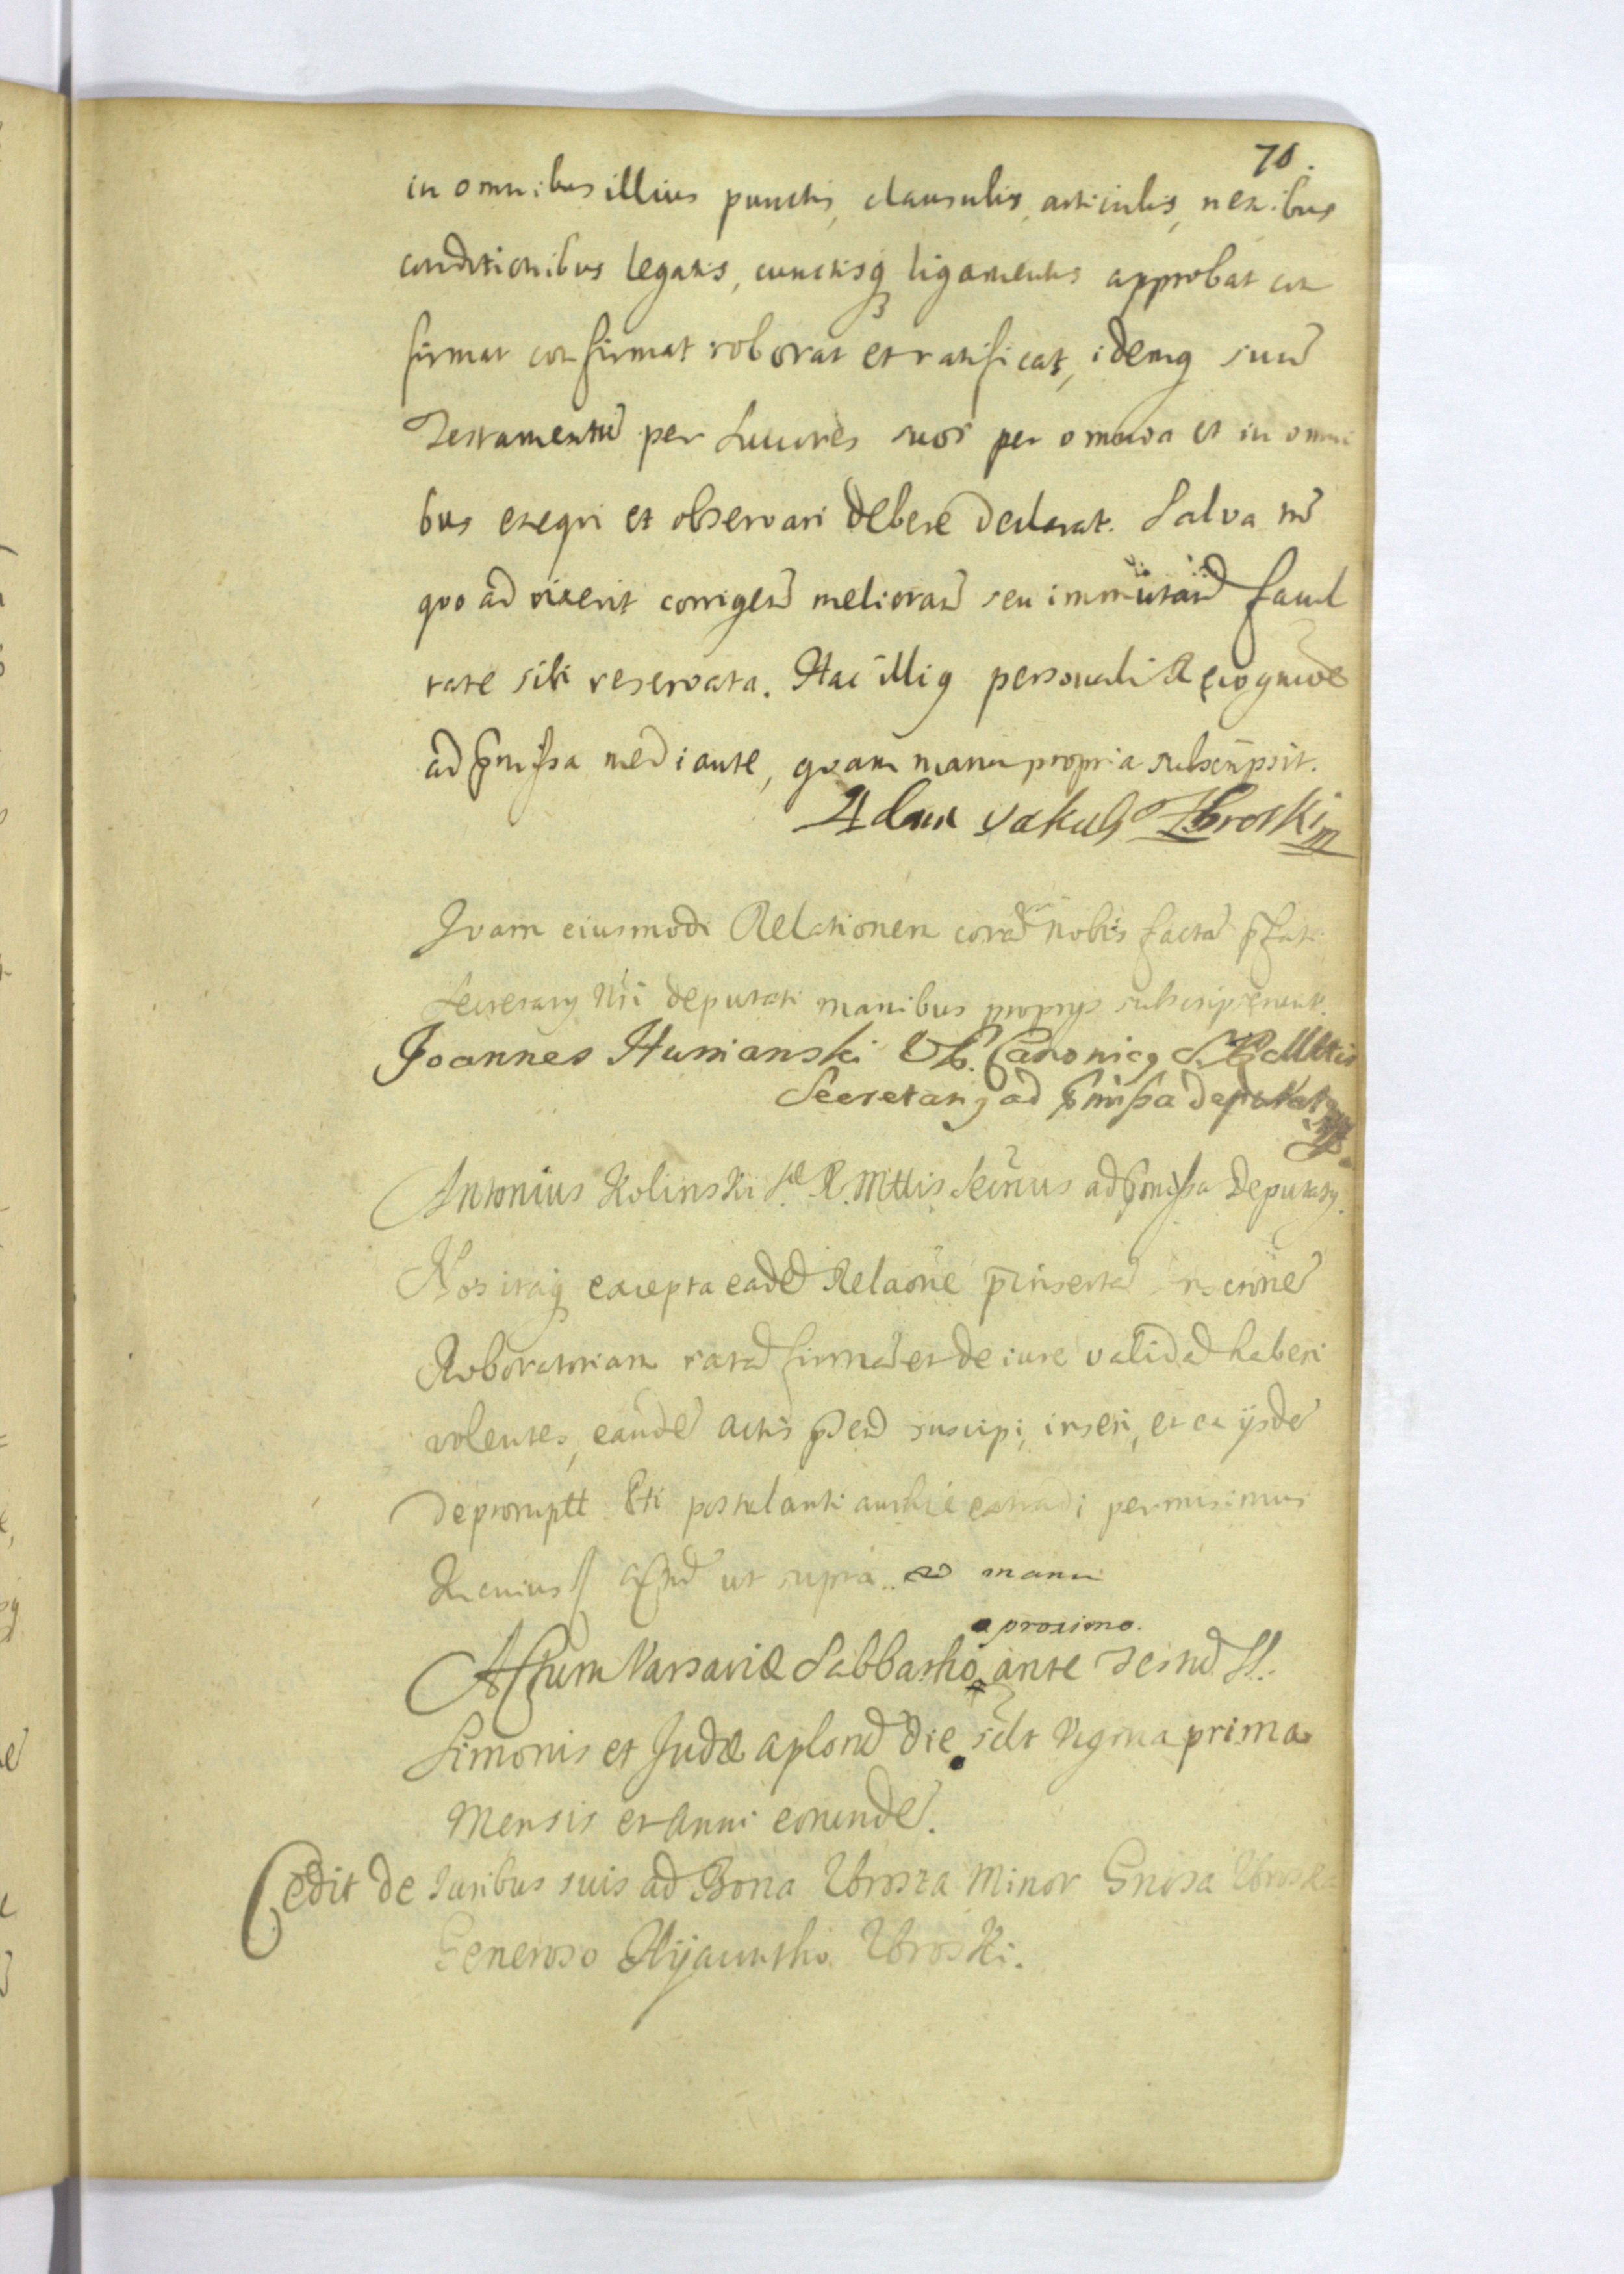 70.
in omnibus illius punctis, clausulis, articulis, nexibus
conditionibus legatis, cunctisq ligamentis approbat con
firmat confirmat roborat et ratificat, idemq suu
Testamentu per Succres suos per omnia et in omni
bus exeqvi et observari debere declarat. Salva tn
qvo ad vixerit corrigen melioran seu immutand facul
tate sibi reservata. Hac illiq personali Recognoe
ad pmissa mediante, qvam manu propria subscripsit.
Adam Jakub Zbroski m
Qvam eiusmodi Relationem cora nobis facta pfati
Secretarij Nri deputati manibus proprijs subscripserunt.
Joannes Hunianski Canonicq S. R. Mttis
Secretarij ad pmissa deputatq
Antonius Kolinski S. R. Mttis Secrius ad pmissa Deputatq.
Nos itaq excepta eade Relaone pinserta
Roboratoriam rata firma et de iure valida haberi
volentes, eande actis suscipi, inseri, et ex ijsde
depromptt Pti postulanti extradi permisimus
In cuius ut supra manu
proximo.
Actum Varsaviæ Sabbatho ante Festu SS.
Simonis et Judæ aplorū die sclt Vigesima prima
Mensis et Anni eorunde.
Cedit de Juribus suis ad Bona Zbroza Minor Gnosa Zbroska
Generoso Hijacintho Zbroski.